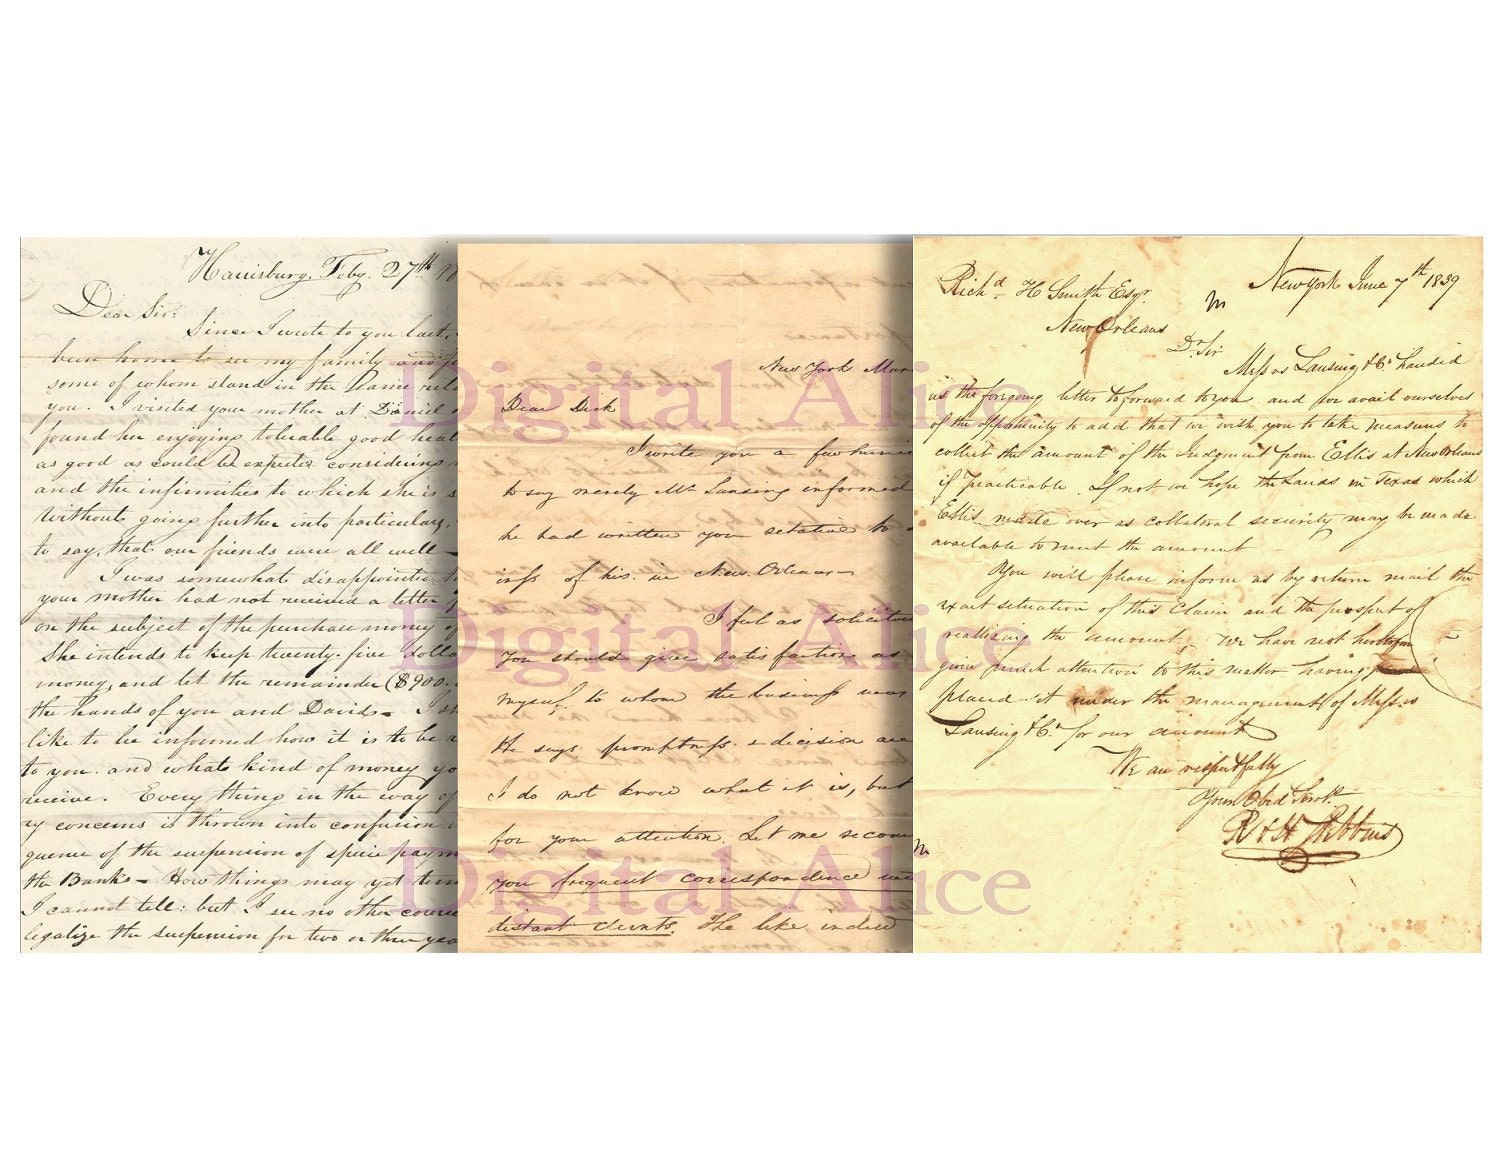 Harrisburg, Feby. 27th
Dear Sir:
Since I wrote to you last,
been home to see my family and
some of whom stand in the same rela
you. I visited your mother at Daniel
found her enjoying tolerable good heal
as good as could be expected considering
and the infirmities to which she is s
Without going further into particulars,
to say, that our friends were all well —
I was somewhat disappointed
your mother had not received a letter
on the subject of the purchase money
She intends to keep twenty-five dolla
money, and let the remainder ($900.
the hands of you and David — I sh
like to be informed how it is to be
to you. and what kind of money yo
receive. Every thing in the way of
ry concerns is thrown into confusion
quence of the suspension of specie paym
the Banks — How things may yet
I cannot tell: but I see no other course
legalize the suspension for two or three yea
New York Mar
Dear Dick
I write you a few
to say merely Mr Lansing informed
he had written you relative to
inss of his in New Orleans —
I feel as solicitou
you should give satisfaction as
myself to whom the business was
He says promptness & decision are
I do not know what it is, but
for your attention. Let me
you frequent correspondence
distant clients. The like indeed
New York June 7th 1839
Richd H Smith Esqr
New Orleans
Dr Sir
Messrs Lansing & Co handed
us the foregoing letter to forward to you and we avail ourselves
of the opportunity to add that we wish you to take measures to
collect the amount of the Judgment from Ellis at New Orleans
if practicable. If not we hope the Lands in Texas which
Ellis made over as collateral security may be made
available to meet the amount
You will please inform us by return mail the
exact situation of this Claim and the prospect of
realising the amount. We have not heretofore
given much attention to this matter having
placed it under the management of Messrs
Lansing & Co for our account
We are respectfully
Your Obdt Servts
R & H
Digital Alice
Digital Alice
Digital Alice